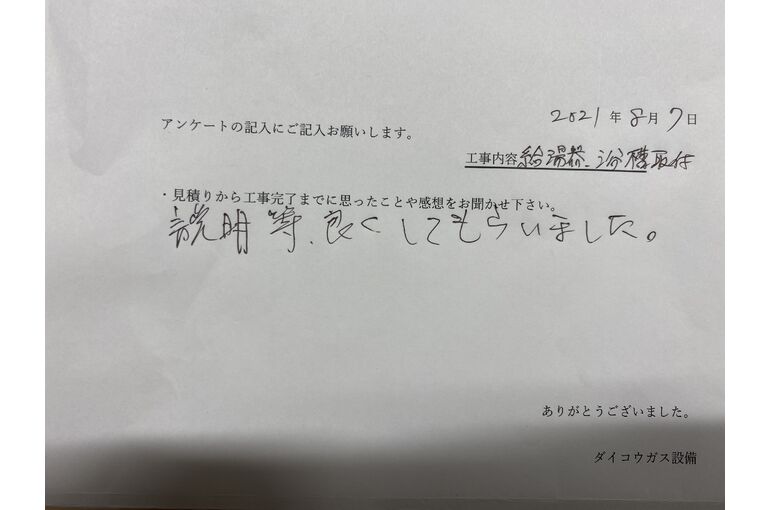 2021年8月7日
アンケートの記入にご記入お願いします。
工事内容 給湯器、浴槽取付
・見積りから工事完了までに思ったことや感想をお聞かせ下さい。
説明等、良くしてもらいました。
ありがとうございました。
ダイコウガス設備